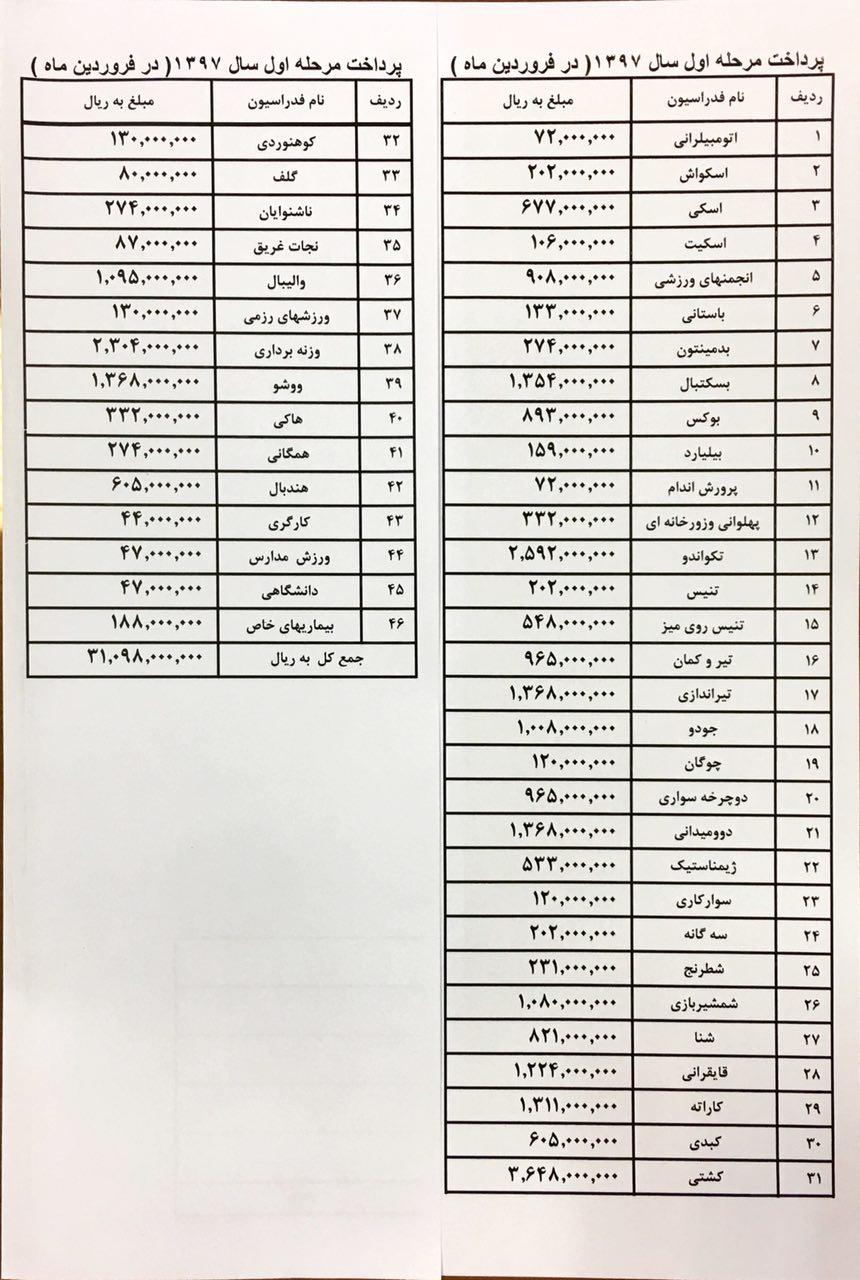 پرداخت مرحله اول سال ۱۳۹۷( در فروردین ماه )
ردیف نام فدراسیون مبلغ به ریال
۱ اتومبیلرانی ۷۲,۰۰۰,۰۰۰
۲ اسکواش ۲۰۲,۰۰۰,۰۰۰
۳ اسکی ۶۷۷,۰۰۰,۰۰۰
۴ اسکیت ۱۰۶,۰۰۰,۰۰۰
۵ انجمنهای ورزشی ۹۰۸,۰۰۰,۰۰۰
۶ باستانی ۱۳۳,۰۰۰,۰۰۰
۷ بدمینتون ۲۷۴,۰۰۰,۰۰۰
۸ بسکتبال ۱,۳۵۴,۰۰۰,۰۰۰
۹ بوکس ۸۹۳,۰۰۰,۰۰۰
۱۰ بیلیارد ۱۵۹,۰۰۰,۰۰۰
۱۱ پرورش اندام ۷۲,۰۰۰,۰۰۰
۱۲ پهلوانی وزورخانه ای ۳۳۲,۰۰۰,۰۰۰
۱۳ تکواندو ۲,۵۹۲,۰۰۰,۰۰۰
۱۴ تنیس ۲۰۲,۰۰۰,۰۰۰
۱۵ تنیس روی میز ۵۴۸,۰۰۰,۰۰۰
۱۶ تیر و کمان ۹۶۵,۰۰۰,۰۰۰
۱۷ تیراندازی ۱,۳۶۸,۰۰۰,۰۰۰
۱۸ جودو ۱,۰۰۸,۰۰۰,۰۰۰
۱۹ چوگان ۱۲۰,۰۰۰,۰۰۰
۲۰ دوچرخه سواری ۹۶۵,۰۰۰,۰۰۰
۲۱ دوومیدانی ۱,۳۶۸,۰۰۰,۰۰۰
۲۲ ژیمناستیک ۵۳۳,۰۰۰,۰۰۰
۲۳ سوارکاری ۱۲۰,۰۰۰,۰۰۰
۲۴ سه گانه ۲۰۲,۰۰۰,۰۰۰
۲۵ شطرنج ۲۳۱,۰۰۰,۰۰۰
۲۶ شمشیربازی ۱,۰۸۰,۰۰۰,۰۰۰
۲۷ شنا ۸۲۱,۰۰۰,۰۰۰
۲۸ قایقرانی ۱,۲۲۴,۰۰۰,۰۰۰
۲۹ کاراته ۱,۳۱۱,۰۰۰,۰۰۰
۳۰ کبدی ۶۰۵,۰۰۰,۰۰۰
۳۱ کشتی ۳,۶۴۸,۰۰۰,۰۰۰
پرداخت مرحله اول سال ۱۳۹۷( در فروردین ماه )
ردیف نام فدراسیون مبلغ به ریال
۳۲ کوهنوردی ۱۳۰,۰۰۰,۰۰۰
۳۳ گلف ۸۰,۰۰۰,۰۰۰
۳۴ ناشنوایان ۲۷۴,۰۰۰,۰۰۰
۳۵ نجات غریق ۸۷,۰۰۰,۰۰۰
۳۶ والیبال ۱,۰۹۵,۰۰۰,۰۰۰
۳۷ ورزشهای رزمی ۱۳۰,۰۰۰,۰۰۰
۳۸ وزنه برداری ۲,۳۰۴,۰۰۰,۰۰۰
۳۹ ووشو ۱,۳۶۸,۰۰۰,۰۰۰
۴۰ هاکی ۳۳۲,۰۰۰,۰۰۰
۴۱ همگانی ۲۷۴,۰۰۰,۰۰۰
۴۲ هندبال ۶۰۵,۰۰۰,۰۰۰
۴۳ کارگری ۴۴,۰۰۰,۰۰۰
۴۴ ورزش مدارس ۴۷,۰۰۰,۰۰۰
۴۵ دانشگاهی ۴۷,۰۰۰,۰۰۰
۴۶ بیماریهای خاص ۱۸۸,۰۰۰,۰۰۰
جمع کل به ریال ۳۱,۰۹۸,۰۰۰,۰۰۰